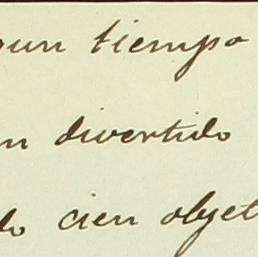 un tiempo
n divertido
do cien objet